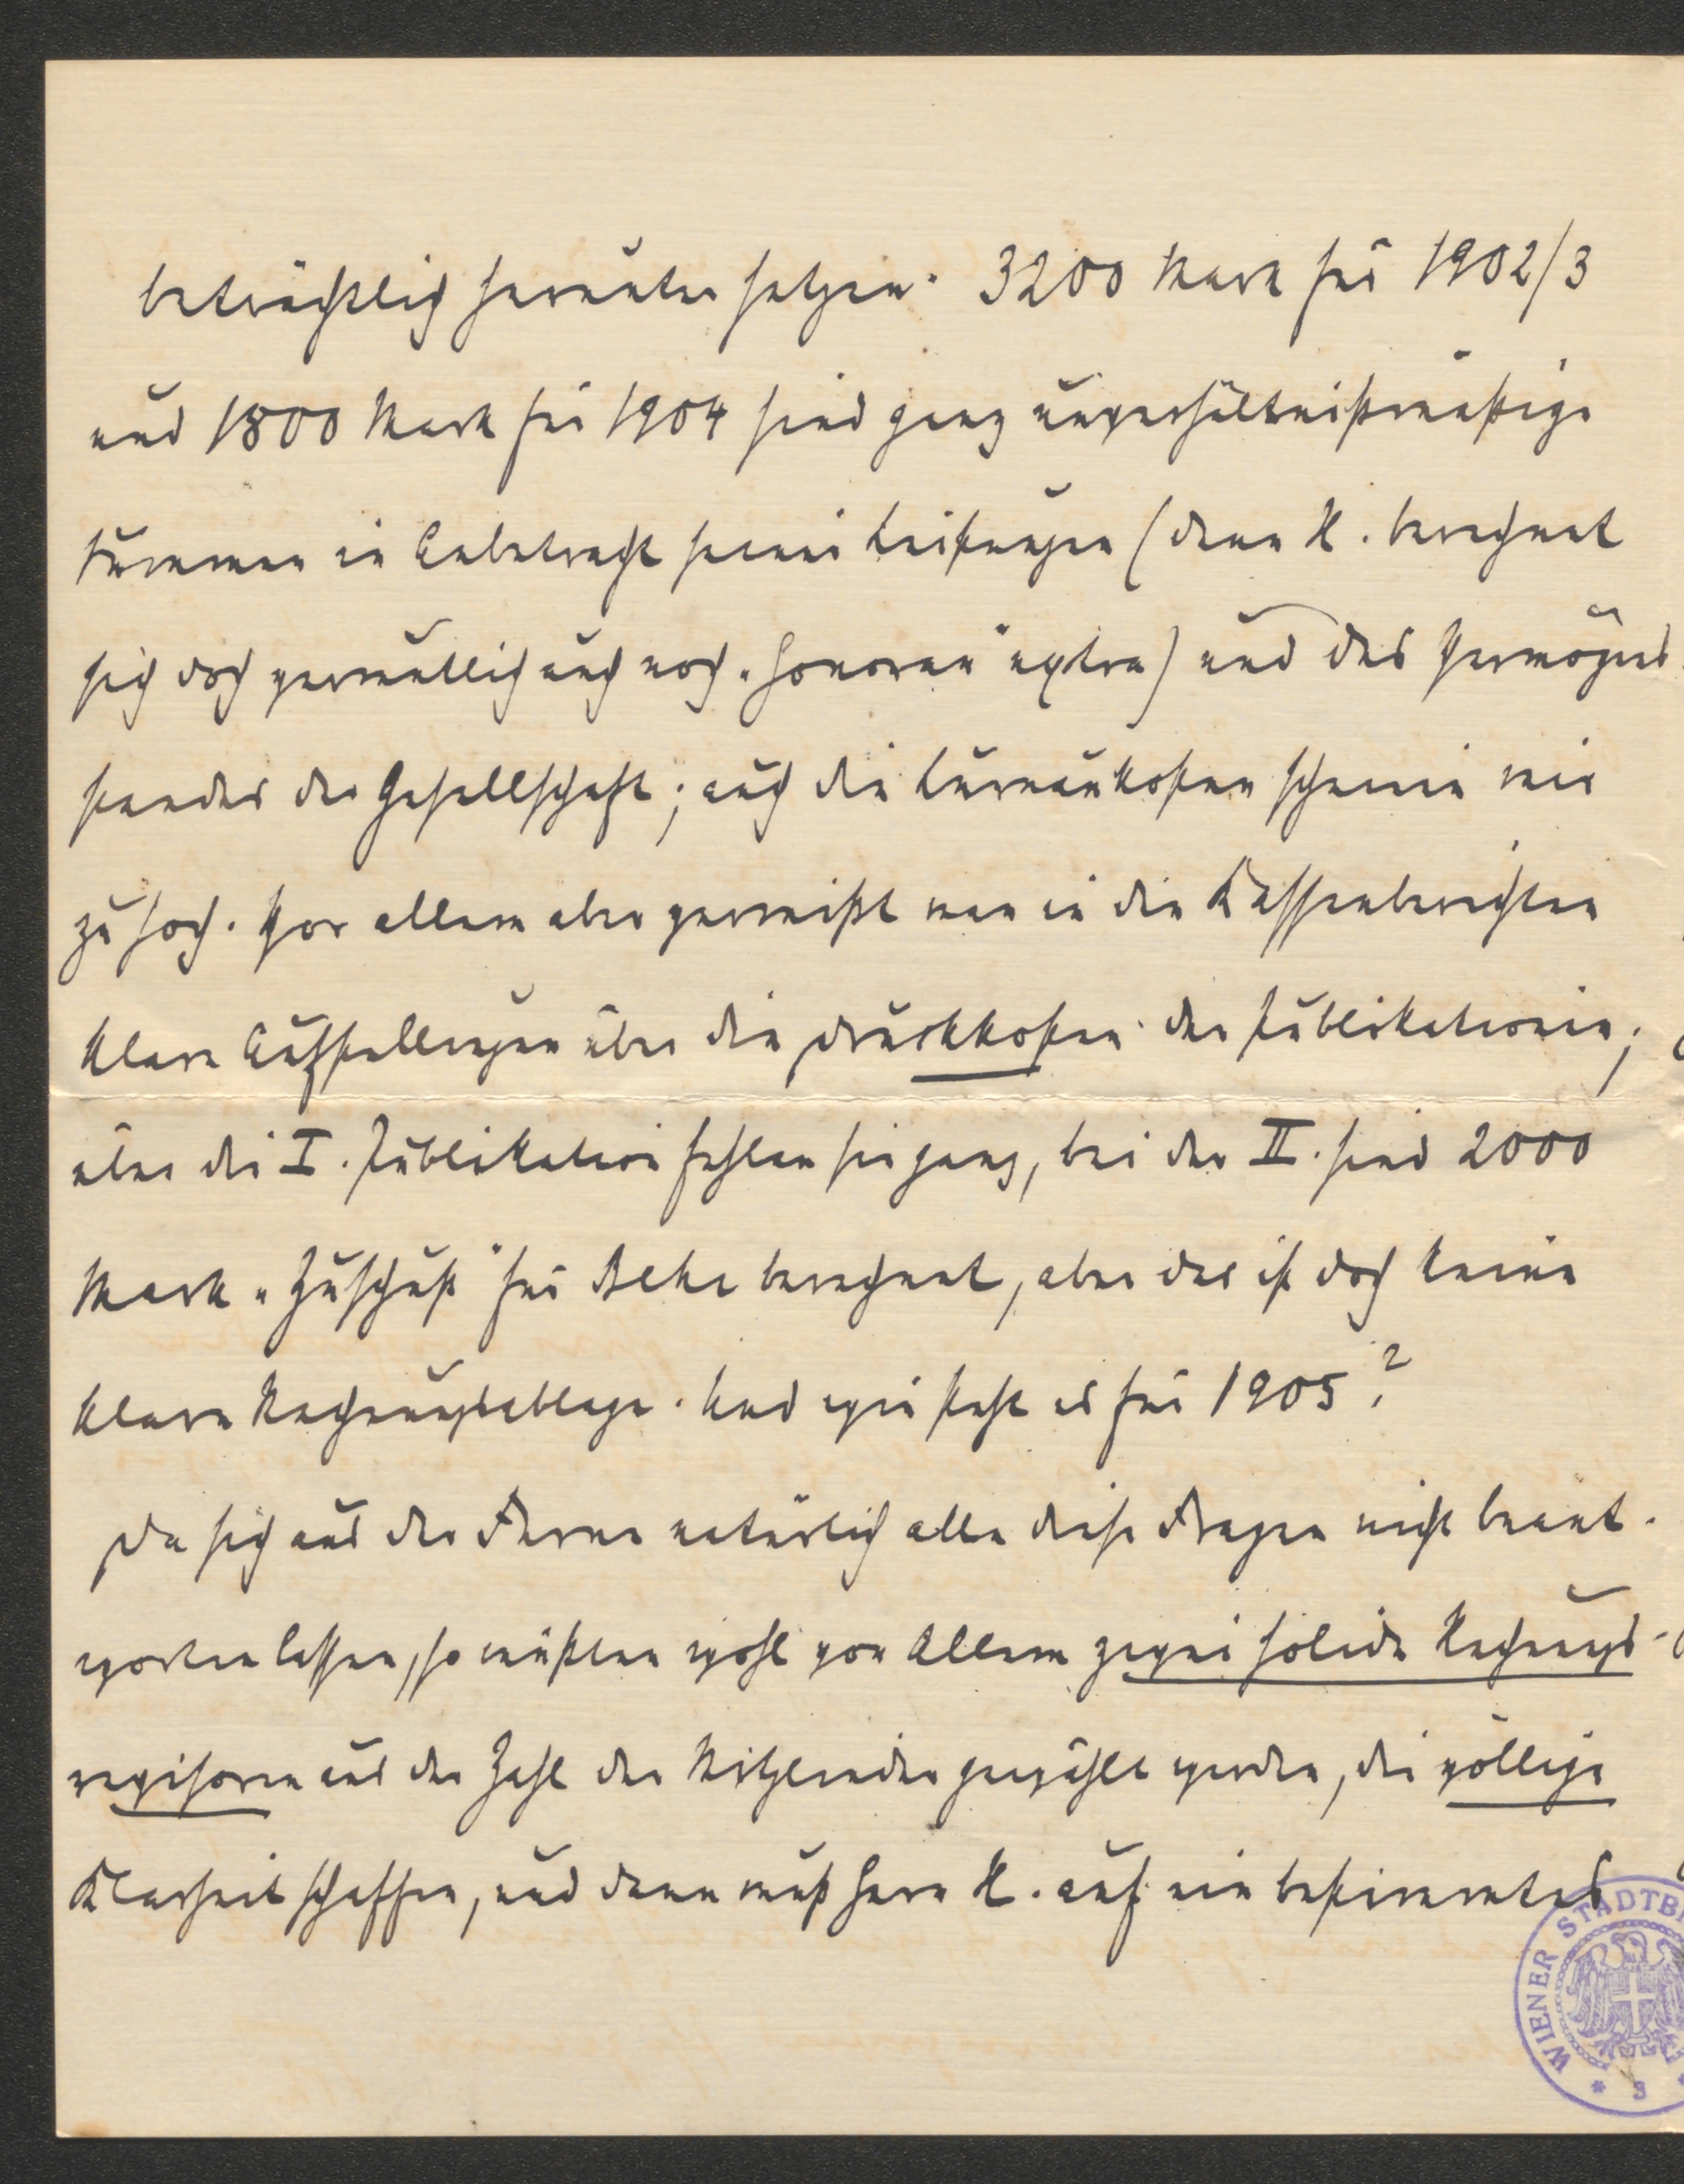 beträchtlich herunter setzen. 3200 Mark für 1902/3
und 1800 Mark für 1904 sind ganz unverhältnißmäßige
Summen in Anbetracht seiner Leistungen (denn K. berechnet
sich doch vermutlich auch noch „Honorar“ extra) und des Vermögens
standes der Gesellschaft; auch die Bureaukosten scheinen mir
zu hoch. Vor allem aber vermißt man in den Kassenberichten
klare Aufstellungen über die Druckkosten der Publikationen;
über die I. Publikation fehlen sie ganz, bei der II. sind 2000
Mark „Zuschuß“ für Beke berechnet, aber das ist doch keine
klare Rechnungsablage. Und wie steht es für 1905?
Da sich aus der Ferne natürlich alle diese Fragen nicht beant-
worten lassen, so müßten wohl vor Allem zwei solide Rechnungs-
revisoren aus der Zahl der Mitglieder gewählt werden, die völlige
Klarheit schaffen, und dann muß Herr K. auf ein bestimmtes
WIENER STADTB